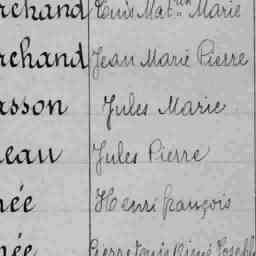 rchand Louis Mat.in Marie
rchand Jean Marie Pierre
asson Jules Marie
eau Jules Pierre
née Henri françois
née Pierre Louis Aimé Joseph